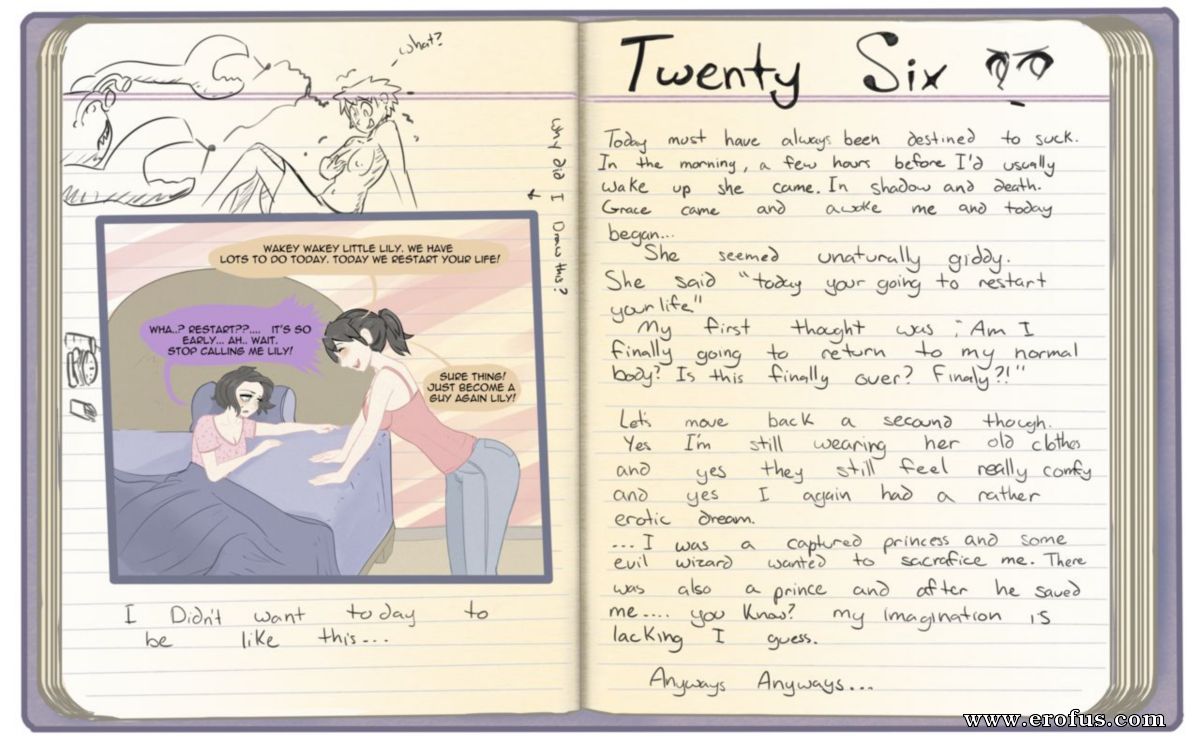 what?
Why did I Draw this?
WAKEY WAKEY LITTLE LILY. WE HAVE
LOTS TO DO TODAY. TODAY WE RESTART YOUR LIFE!
WHA..? RESTART??.... IT'S SO
EARLY... AH.. WAIT.
STOP CALLING ME LILY!
SURE THING!
JUST BECOME A
GUY AGAIN LILY!
I Didn't want today to
be like this...
Twenty Six
Today must have always been destined to suck.
In the morning, a few hours before I'd usually
wake up she came. In shadow and death.
Grace came and awoke me and today
began...
She seemed unaturally giddy.
She said "today your going to restart
your life"
My first thought was ; Am I
finally going to return to my normal
body? Is this finally over? Finaly?!"
Lets move back a secound though.
Yes I'm still wearing her old clothes
and yes they still feel really comfy
and yes I again had a rather
erotic dream.
... I was a captured princess and some
evil wizard wanted to sacrafice me. There
was also a prince and after he saved
me.... you know? my imagination is
lacking I guess.
Anyways Anyways...
www.erofus.com